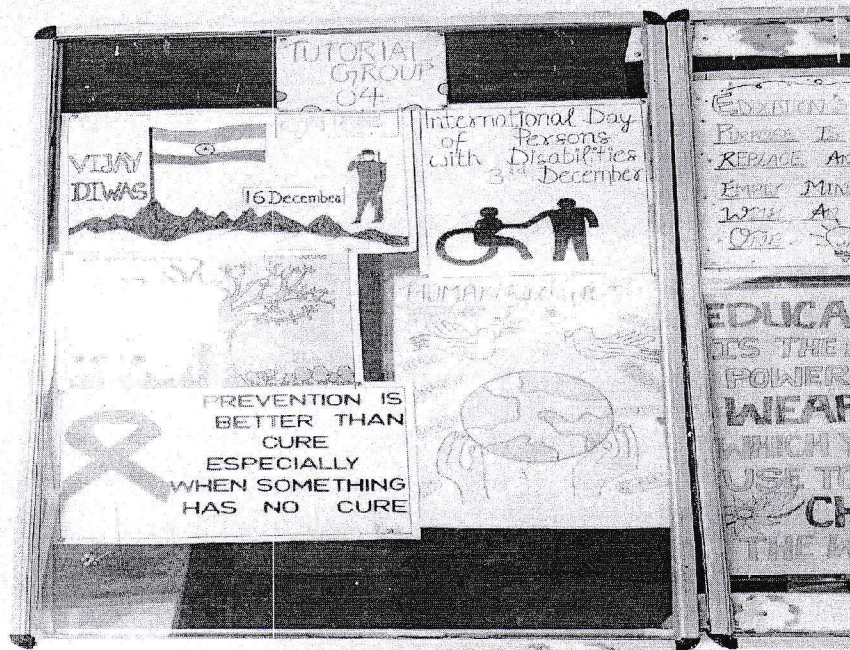 TUTORIAL
GROUP
04
VIJAY
DIWAS
16 December
International Day
of Persons
with Disabilities
3rd December
HUMAN
PREVENTION IS
BETTER THAN
CURE
ESPECIALLY
WHEN SOMETHING
HAS NO CURE
EDUCATION'S
PURPOSE IS
REPLACE AN
EMPTY MIN
WITH AN
OPE
EDUCA
IS THE
POWER
WEAP
WHICH Y
USE TO
CH
THE W